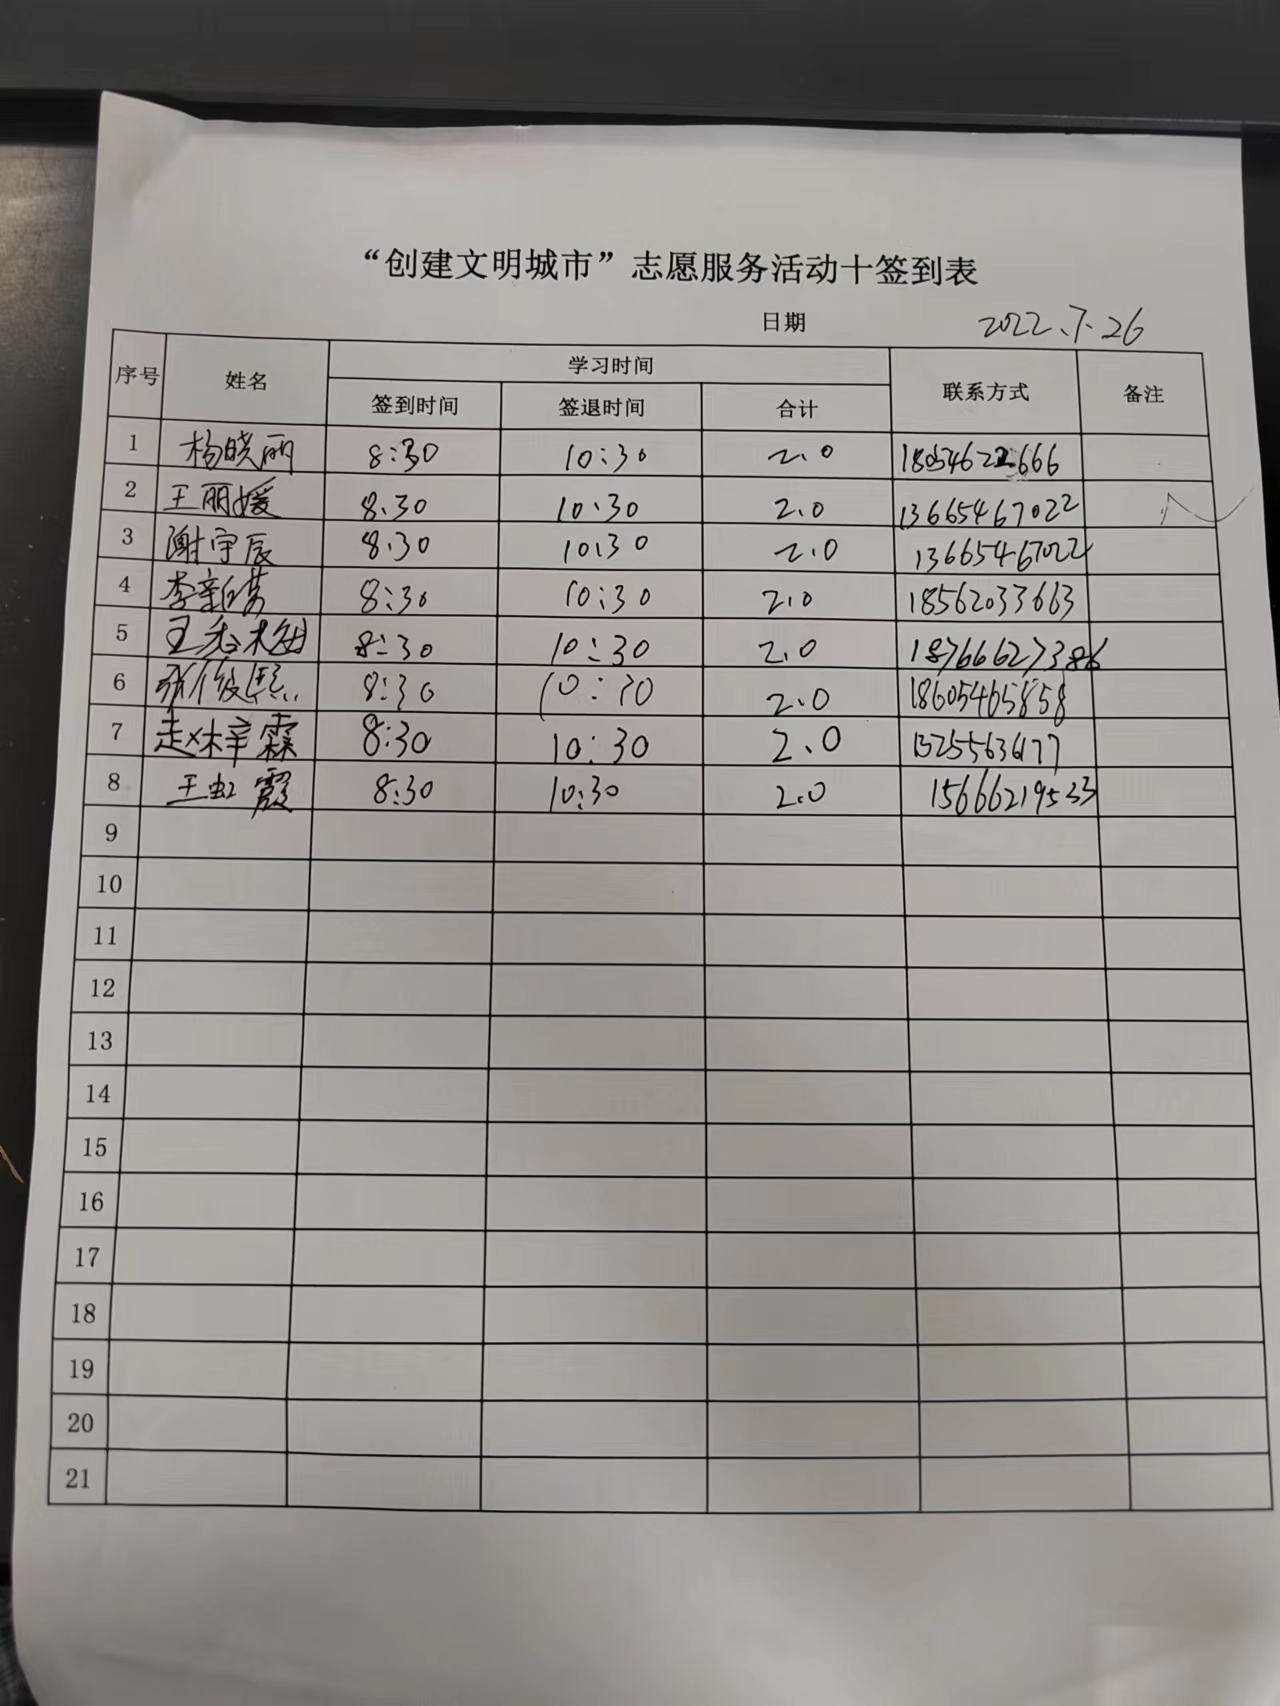 “创建文明城市”志愿服务活动十签到表
日期 2022.7.26
序号 姓名 学习时间 联系方式 备注
签到时间 签退时间 合计
1 杨晓丽 8:30 10:30 2.0
2 王丽媛 8.30 10.30 2.0 13665467022
3 谢宇辰 8.30 10.30 2.0 13665467022
4 8:30 10:30 2.0 18562033663
5 8:30 10:30 2.0 18766627386
6 8:30 10:30 2.0 18605465858
7 赵梓霖 8:30 10:30 2.0
8 王虹霞 8:30 10:30 2.0 15666219533
9
10
11
12
13
14
15
16
17
18
19
20
21